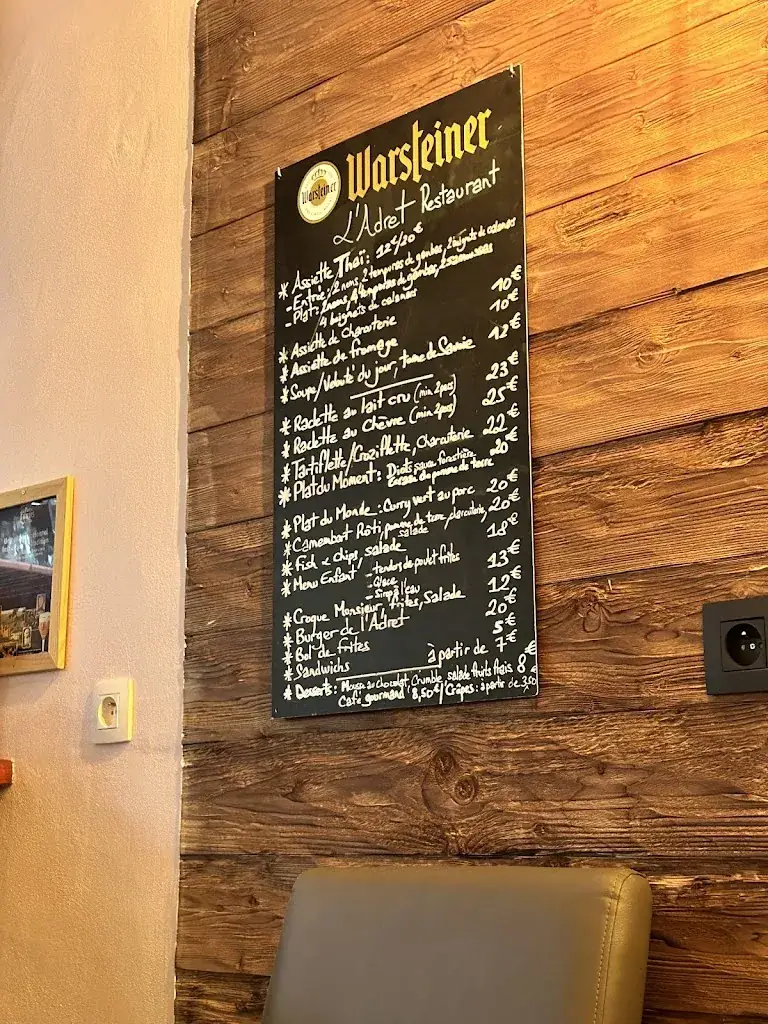 Warsteiner
Warsteiner
L'Adret Restaurant
* Assiette Thaï: 12€/20€
- Entrée: 2 nems, 2 tempuras de gambas, 2 beignets de calamars
- Plat: 2 nems, 4 tempuras de gambas, 2
4 beignets de calamars
* Assiette de Charcuterie 10€
* Assiette de fromage 10€
* Soupe/Velouté du jour, tome de Savoie 12€
* Raclette au lait cru (min 2pers) 23€
* Raclette au Chèvre (min 2pers) 25€
* Tartiflette/Croziflette, Charcuterie 22€
* Plat du Moment: Diots sauce forestière 20€
Ecrasé de pomme de terre
* Plat du Monde: Curry vert au porc 20€
* Camembert Rôti, pomme de terre, charcuterie, 20€
salade
* Fish & chips, salade 18€
* Menu Enfant - tenders de poulet frites 13€
- Glace
- Sirop à l'eau
* Croque Monsieur, frites, salade 12€
* Burger de l'Adret 20€
* Bol de frites 5€
* Sandwichs à partir de 7€
* Desserts: Mousse au chocolat, Crumble, salade fruits frais 8€
Café gourmand 8,50€/Crêpes: à partir de 3,50